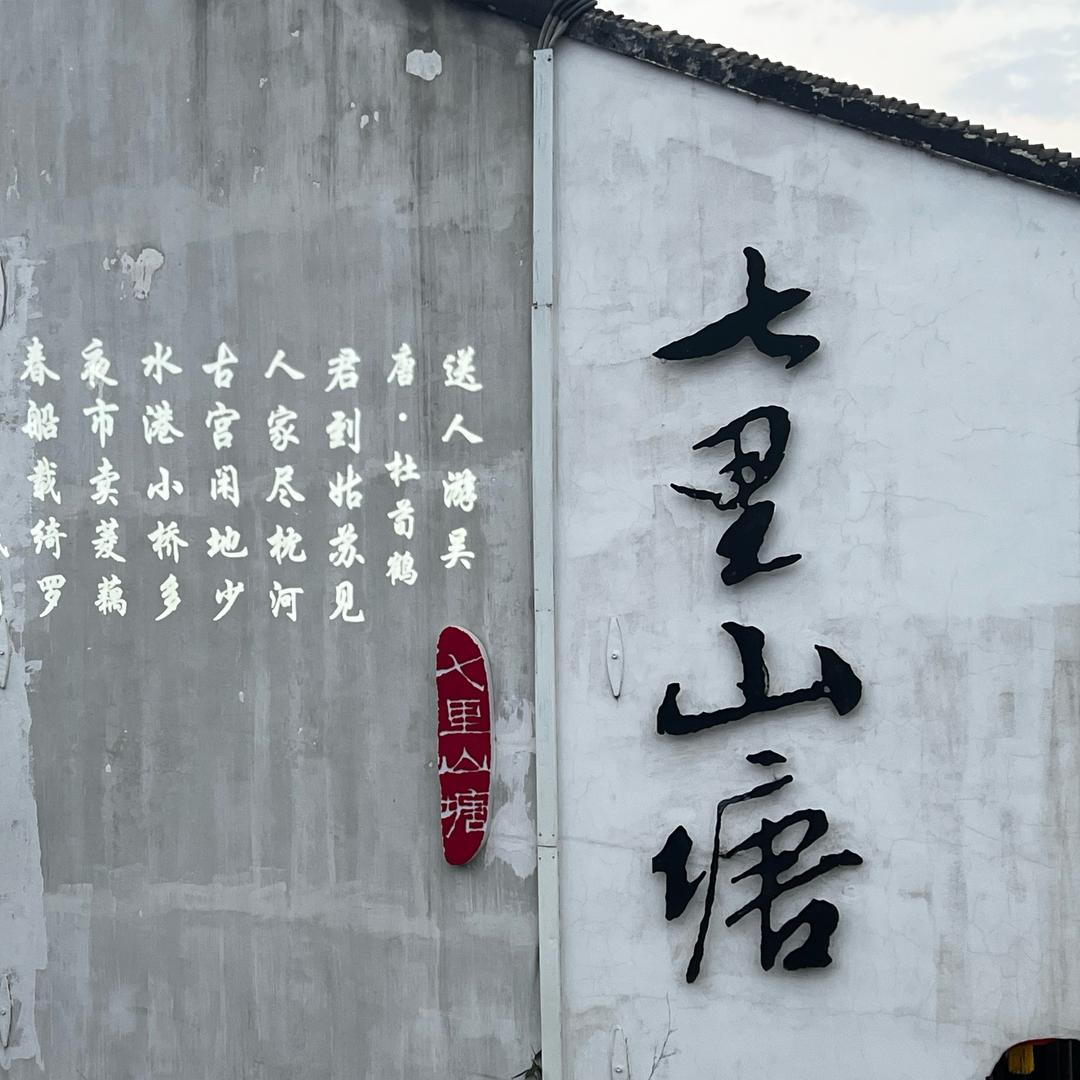 七里山塘
送人游吴
唐·杜荀鹤
君到姑苏见
人家尽枕河
古宫闲地少
水港小桥多
夜市卖菱藕
春船载绮罗
七里山塘